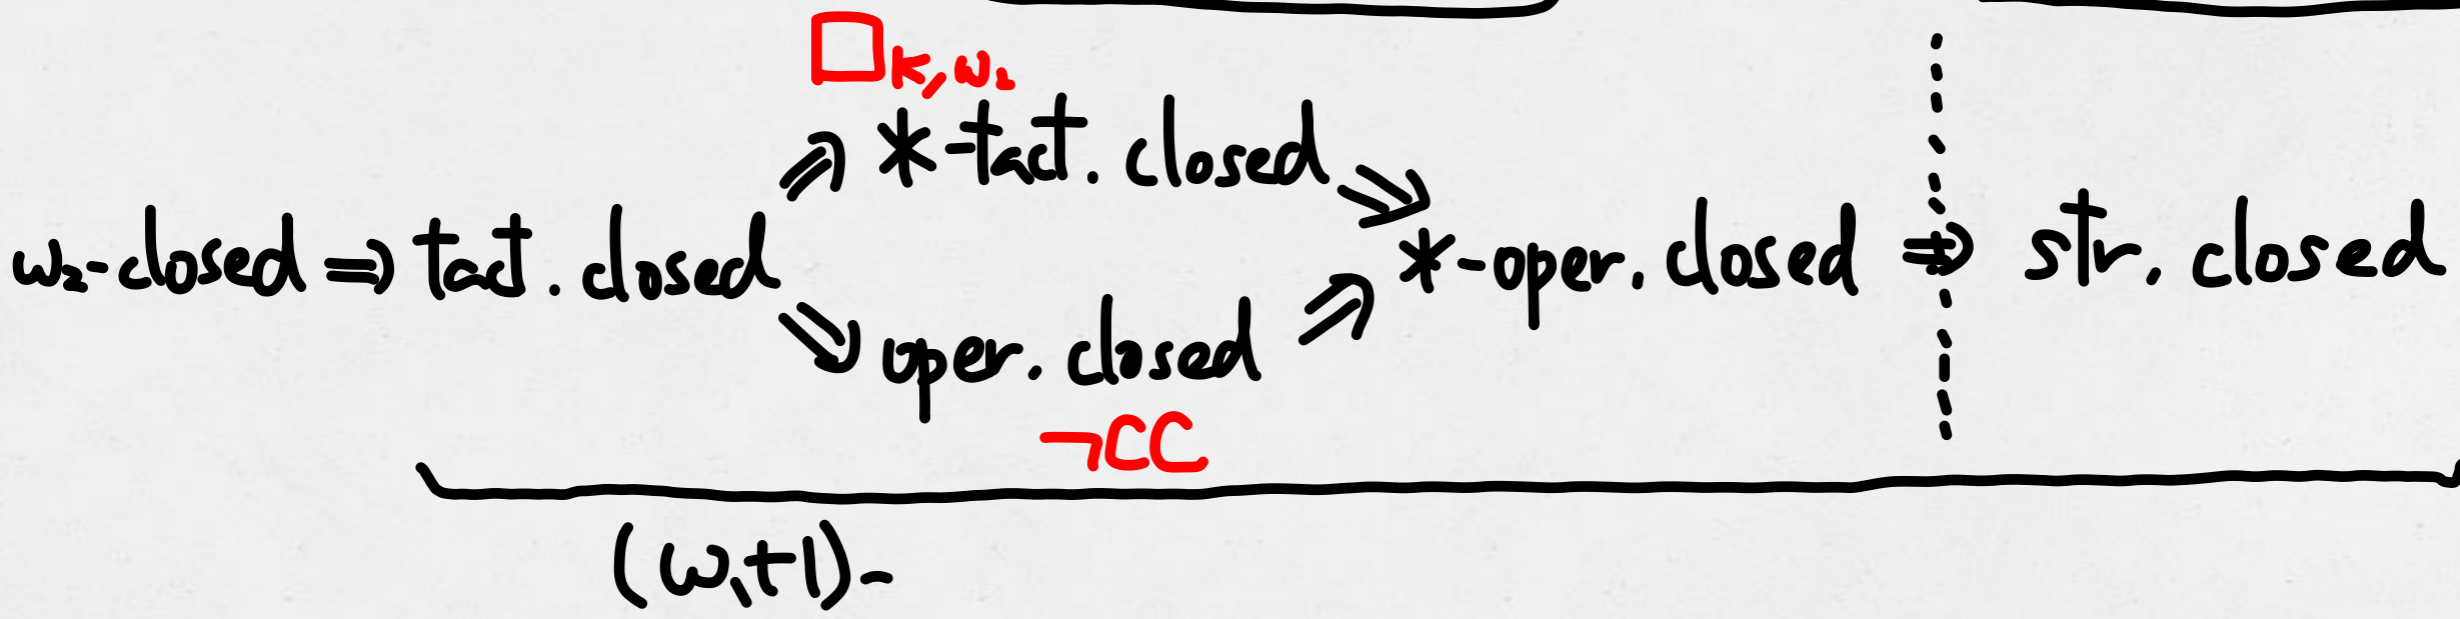 □κ,ω₂
*-tact. closed
ω₂-closed ⇒ tact. closed ⇗ ⇘ *-oper. closed ⇒ str. closed
⇘ oper. closed ⇗
¬CC
(ω₁+1)-